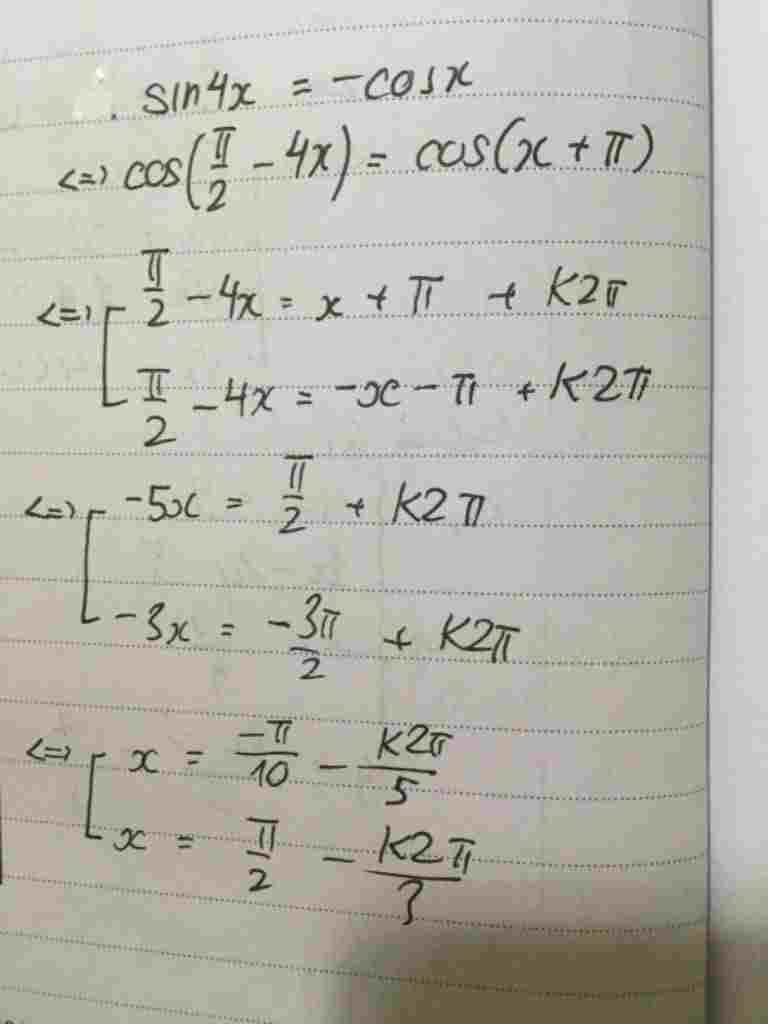 sin4x = -cosx
<=> cos(π/2 - 4x) = cos(x + π)
<=> [ π/2 - 4x = x + π + K2π
π/2 - 4x = -x - π + K2π
<=> [ -5x = π/2 + K2π
-3x = -3π/2 + K2π
<=> [ x = -π/10 - K2π/5
x = π/2 - K2π/3